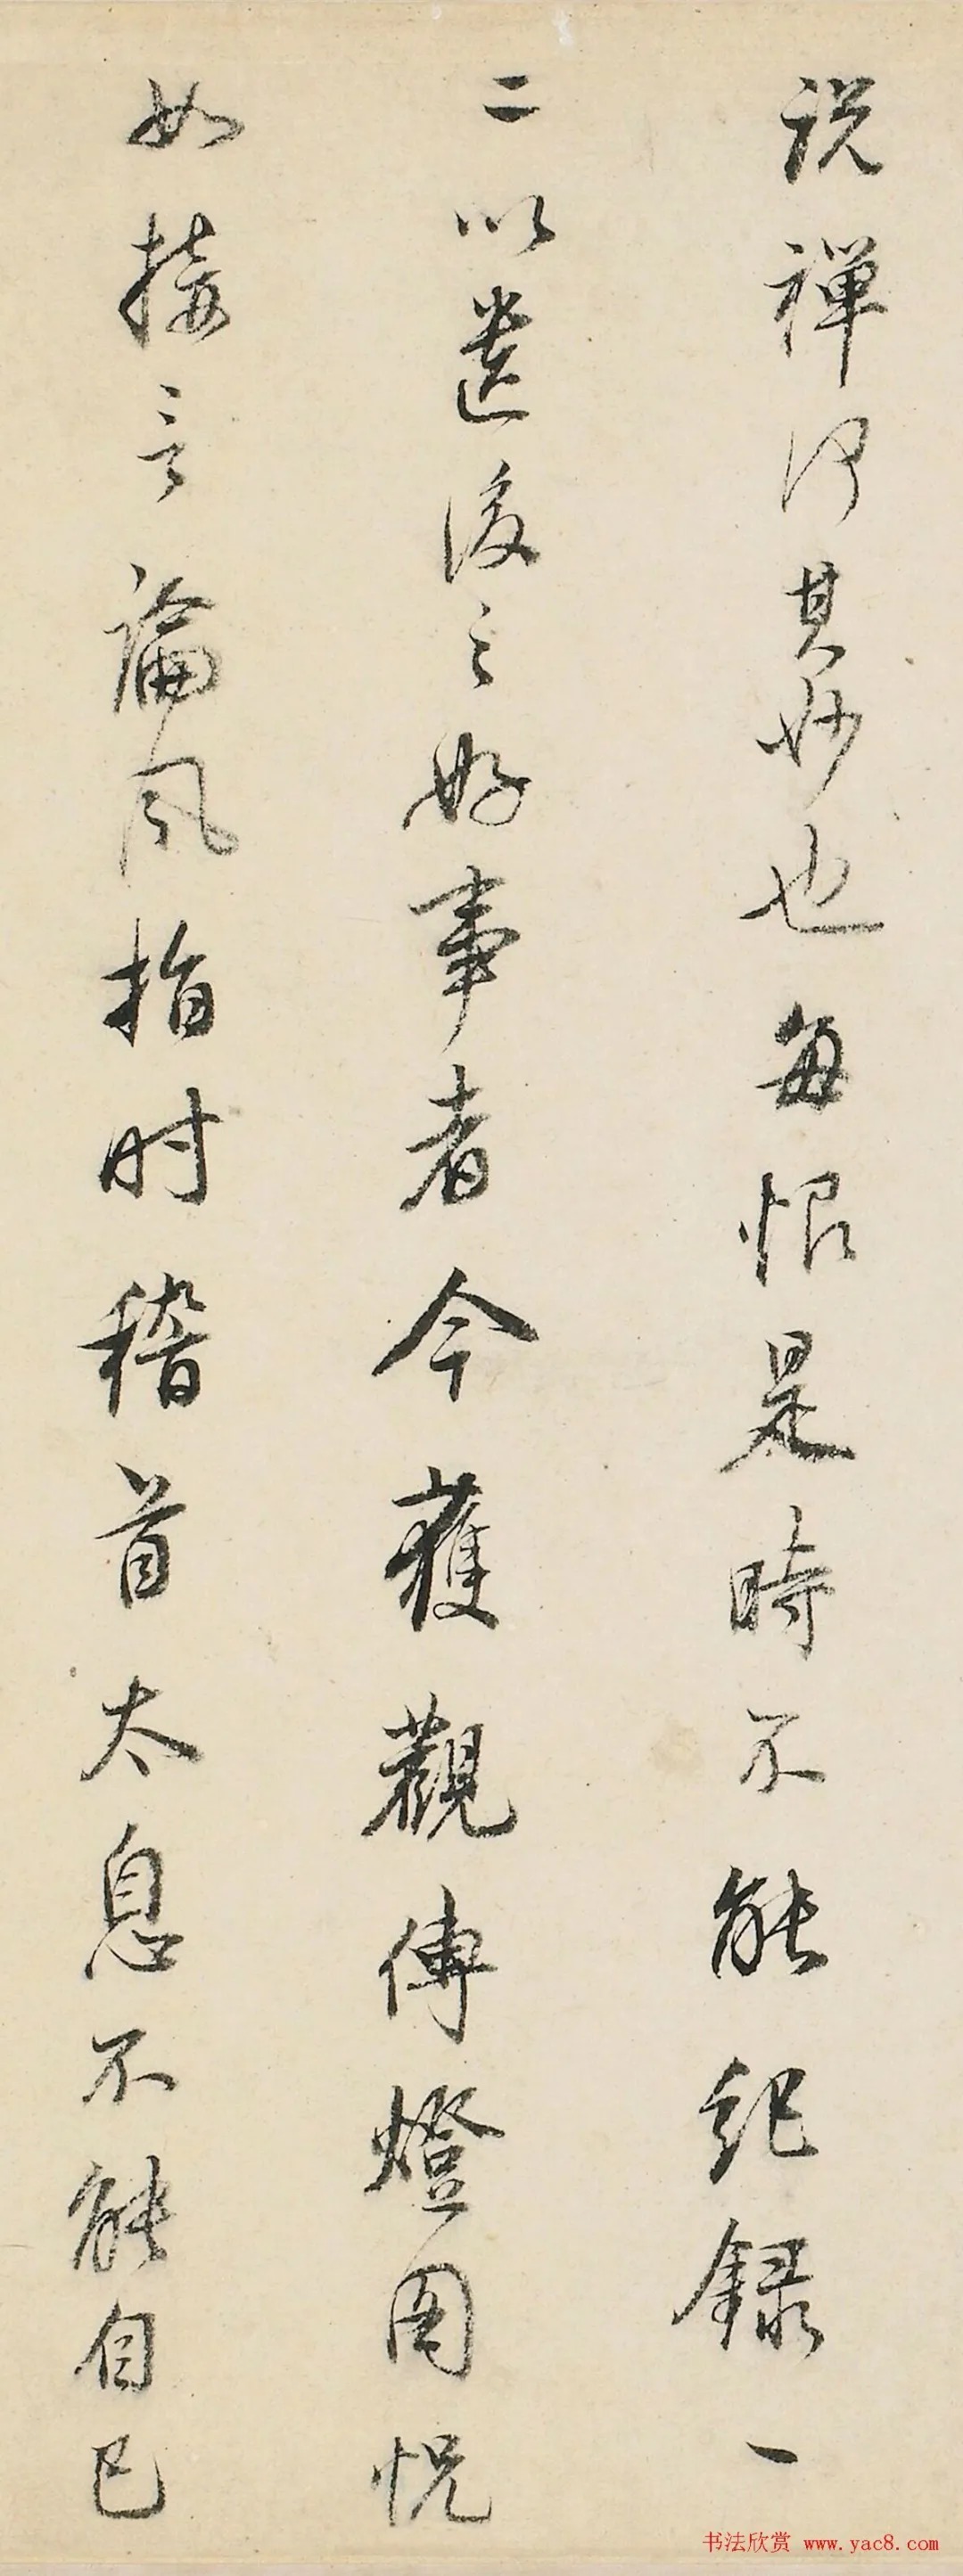 说禅得其妙也每恨是時不能纪録一
二以遗後之好事者今獲觀傳燈圖恍
如接言論風指时稽首太息不能自已
书法欣赏 www.yac8.com